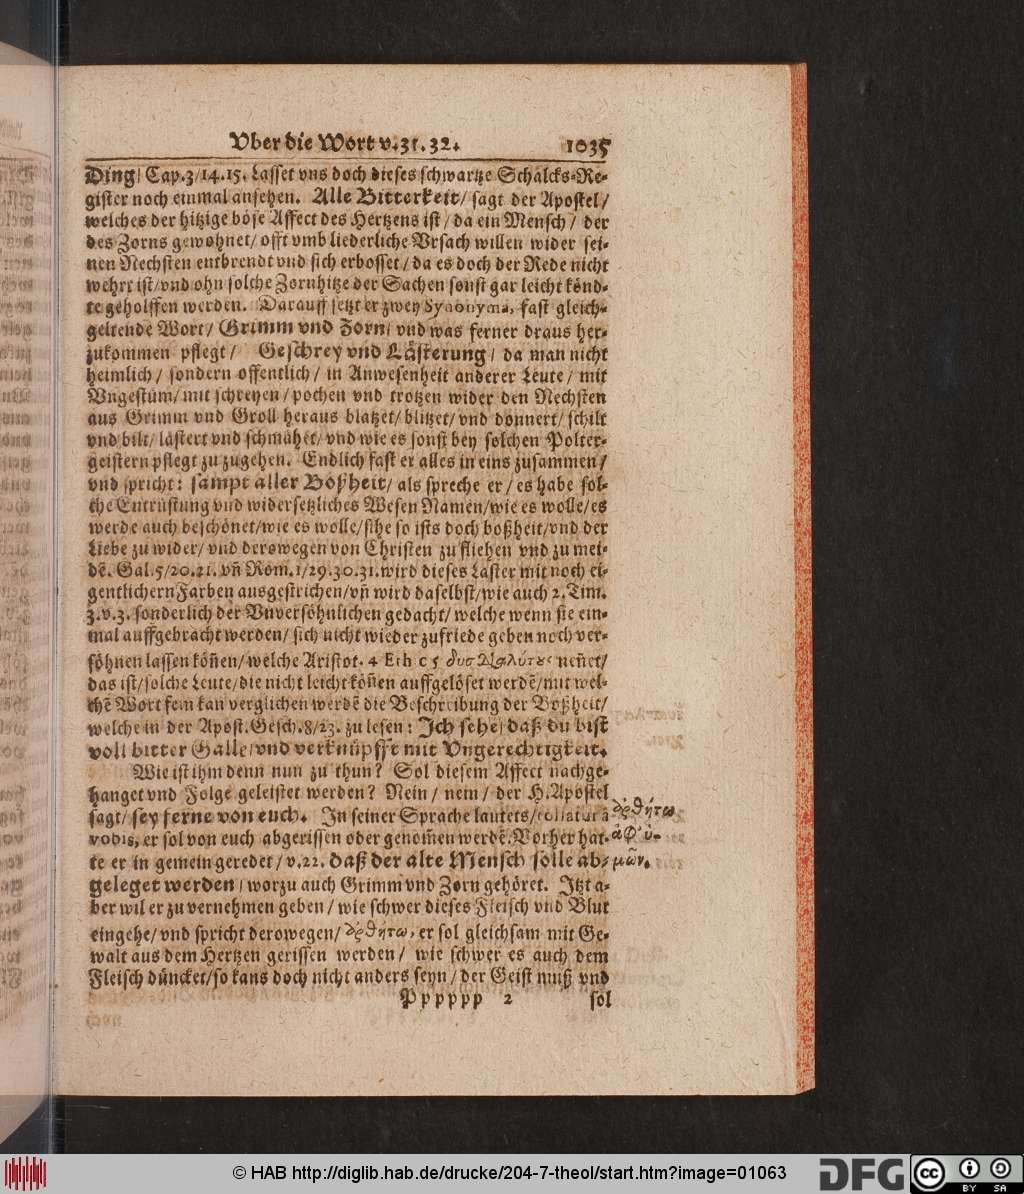 Vber die Wort v.31.32. 1035
Ding/ Cap.3/14.15. Lasset vns doch dieses schwartze Schalcks-Re-
gister noch einmal ansehen. Alle Bitterkeit/ sagt der Apostel/
welches der hitzige böse Affect des Hertzens ist/ da ein Mensch/ der
des Zorns gewohnet/ offt vmb liederliche Vrsach willen wider sei-
nen Nechsten entbrendt vnd sich erbosset/ da es doch der Rede nicht
wehrt ist/ vnd ohn solche Zornhitze der Sachen sonst gar leicht könd-
te geholffen werden. Darauff setzt er zwey Synonyma, fast gleich-
geltende Wort/ Grimm vnd Zorn/ vnd was ferner draus her-
zukommen pflegt/ Geschrey vnd Lästerung/ da man nicht
heimlich/ sondern offentlich/ in Anwesenheit anderer Leute/ mit
Vngestüm/ mit schreyen/ pochen vnd trotzen wider den Nechsten
aus Grimm vnd Groll heraus blatzet/ blitzet/ vnd donnert/ schilt
vnd bilt/ lästert vnd schmähet/ vnd wie es sonst bey solchen Polter-
geistern pflegt zu zugehen. Endlich fast er alles in eins zusammen/
vnd spricht: sampt aller Boßheit/ als spreche er/ es habe sol-
che Entrüstung vnd widersetzliches Wesen Namen/ wie es wolle/ es
werde auch beschönet/ wie es wolle/ sihe so ists doch boßheit/ vnd der
Liebe zu wider/ vnd derowegen von Christen zu fliehen vnd zu mei-
dē. Gal.5/20.21. vñ Rom.1/29.30.31. wird dieses Laster mit noch ei-
gentlichern Farben ausgestrichen/ vñ wird daselbst/ wie auch 2.Tim.
3.v.3. sonderlich der Vnversöhnlichen gedacht/ welche wenn sie ein-
mal auffgebracht werden/ sich nicht wieder zufriede geben noch ver-
söhnen lassen köñen/ welche Aristot. 4 Eth c 5 δυσδιαλύτους neñet/
das ist/ solche Leute/ die nicht leicht köñen auffgelöset werdē/ mit wel-
chē Wort fein kan verglichen werdē die Beschreibung der Boßheit/
welche in der Apost.Gesch.8/23. zu lesen: Ich sehe/ daß du bist
voll bitter Galle/ vnd verknüpfft mit Vngerechtigkeit.
Wie ist ihm denn nun zu thun? Sol diesem Affect nachge-
hanget vnd Folge geleistet werden? Nein/ nein/ der H. Apostel
sagt/ sey ferne von euch. In seiner Sprache lautets/ tollatur à
vobis, er sol von euch abgerissen oder genom̄en werdē. Vorher hat-
te er in gemein geredet/ v.22. daß der alte Mensch solle ab-
geleget werden/ worzu auch Grimm vnd Zorn gehöret. Jtzt a-
ber wil er zu vernehmen geben/ wie schwer dieses Fleisch vnd Blut
eingehe/ vnd spricht derowegen/ ἀρθήτω, er sol gleichsam mit Ge-
walt aus dem Hertzen gerissen werden/ wie schwer es auch dem
Fleisch düncket/ so kans doch nicht anders seyn/ der Geist muß vnd
Pppppp 2 sol
ἀρθήτω
ἀφ' ὑ-
μῶν.
© HAB http://diglib.hab.de/drucke/204-7-theol/start.htm?image=01063
DFG
cc
BY SA